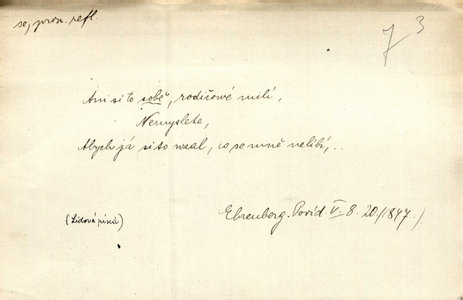 se, pron. refl.
7 3
Ani si to sobě, rodičové milí,
Nemyslete,
Abych já si to vzal, co se mně nelíbí,..
(Lidová píseň)
Ehrenberg. Povíd. V. 8. 20/(1847.)